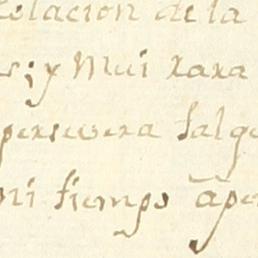 olacion de la
s; y Mui rara
persevera salg
ni tiempo ape